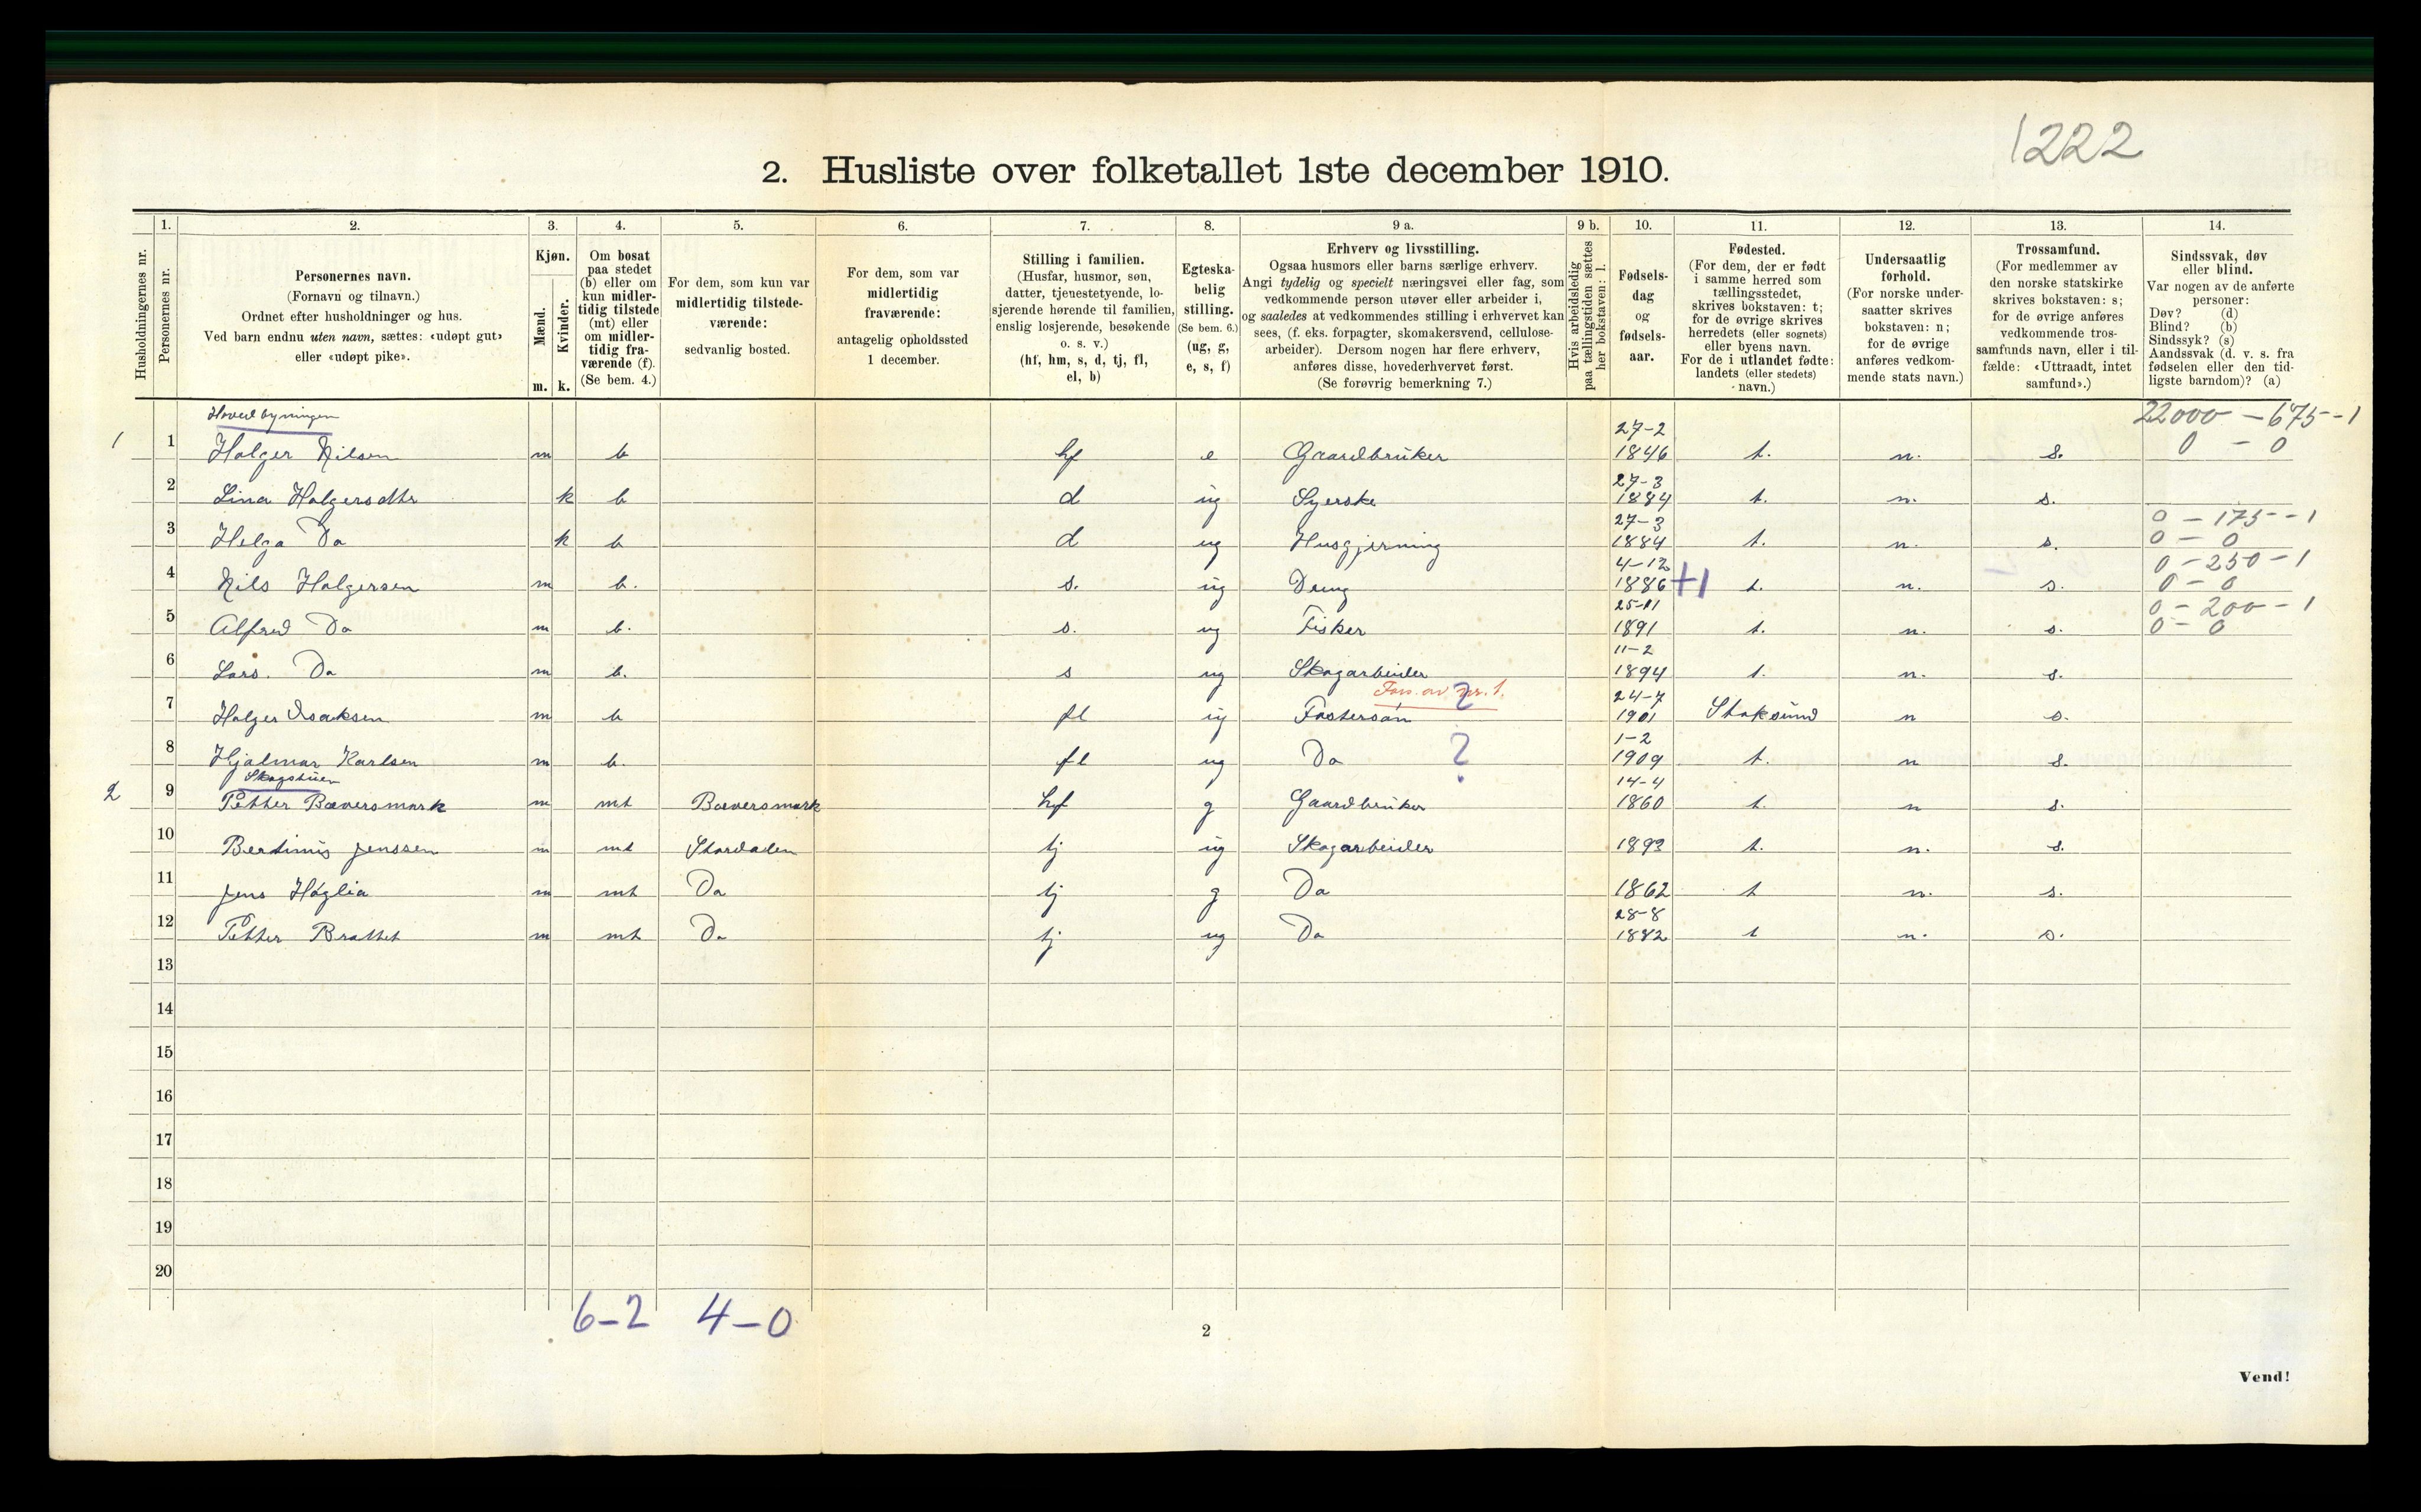 1222
2. Husliste over folketallet 1ste december 1910.
1. 2. 3. 4. 5. 6. 7. 8. 9 a. 9 b. 10. 11. 12. 13. 14.
Husholdningernes nr.
Personernes nr.
Personernes navn.
(Fornavn og tilnavn.)
Ordnet efter husholdninger og hus.
Ved barn endnu uten navn, sættes: «udøpt gut»
eller «udøpt pike».
Kjøn.
Mænd.
Kvinder.
m. k.
Om bosat
paa stedet
(b) eller om
kun midler-
tidig tilstede
(mt) eller
om midler-
tidig fra-
værende (f).
(Se bem. 4.)
For dem, som kun var
midlertidig tilstede-
værende:
sedvanlig bosted.
For dem, som var
midlertidig
fraværende:
antagelig opholdssted
1 december.
Stilling i familien.
(Husfar, husmor, søn,
datter, tjenestetyende, lo-
sjerende hørende til familien,
enslig losjerende, besøkende
o. s. v.)
(hf, hm, s, d, tj, fl,
el, b)
Egteska-
belig
stilling.
(Se bem. 6.)
(ug, g,
e, s, f)
Erhverv og livsstilling.
Ogsaa husmors eller barns særlige erhverv.
Angi tydelig og specielt næringsvei eller fag, som
vedkommende person utøver eller arbeider i,
og saaledes at vedkommendes stilling i erhvervet kan
sees, (f. eks. forpagter, skomakersvend, cellulose-
arbeider). Dersom nogen har flere erhverv,
anføres disse, hovederhvervet først.
(Se forøvrig bemerkning 7.)
Hvis arbeidsledig
paa tællingstiden sættes
her bokstaven: l.
Fødsels-
dag
og
fødsels-
aar.
Fødested.
(For dem, der er født
i samme herred som
tællingsstedet,
skrives bokstaven: t;
for de øvrige skrives
herredets (eller sognets)
eller byens navn.
For de i utlandet fødte:
landets (eller stedets)
navn.)
Undersaatlig
forhold.
(For norske under-
saatter skrives
bokstaven: n;
for de øvrige
anføres vedkom-
mende stats navn.)
Trossamfund.
(For medlemmer av
den norske statskirke
skrives bokstaven: s;
for de øvrige anføres
vedkommende tros-
samfunds navn, eller i til-
fælde: «Uttraadt, intet
samfund».)
Sindssvak, døv
eller blind.
Var nogen av de anførte
personer:
Døv? (d)
Blind? (b)
Sindssyk? (s)
Aandssvak (d. v. s. fra
fødselen eller den tid-
ligste barndom)? (a)
Hovedbyningen 22000 - 675 - 1
1 1 Holger Nilsen m b hf e Gaardbruker 27-2 1846 t. n. s. 0 - 0
2 Lina Holgersdtr k b d ug Syerske 27-3 1884 t. n. s.
0 - 175 - 1
3 Helga Do k b d ug Husgjerning 27-3 1884 t. n. s. 0 - 0
0 - 250 - 1
4 Nils Holgersen m b. s. ug Dreng 4-12 1886 +1 t. n. s. 0 - 0
0 - 200 - 1
5 Alfred Do m b. s. ug Fisker 25-11 1891 t. n. s. 0 - 0
6 Lars. Do m b. s ug Skogarbeider 11-2 1894 t. n. s.
av nr. 1. ?
7 Holger Isaksen m b fl ug Fostersøn 24-7 1901 Stoksund n s.
8 Hjalmar Karlsen m b. fl ug Do ? 1-2 1909 t. n s.
Skogstuen
2 9 Petter Bæversmark m mt Bæversmark hf g Gaardbruker 14-4 1860 t. n s.
10 Bertinus Jenssen m mt Stordalen tj ug Skogarbeider 1893 t. n. s.
11 Jens Høglia m mt Do tj g Do 1862 t n. s.
12 Petter Brattet m mt Do tj ug Do 28-8 1882 t n. s.
13
14
15
16
17
18
19
20
6-2 4-0
2
Vend!